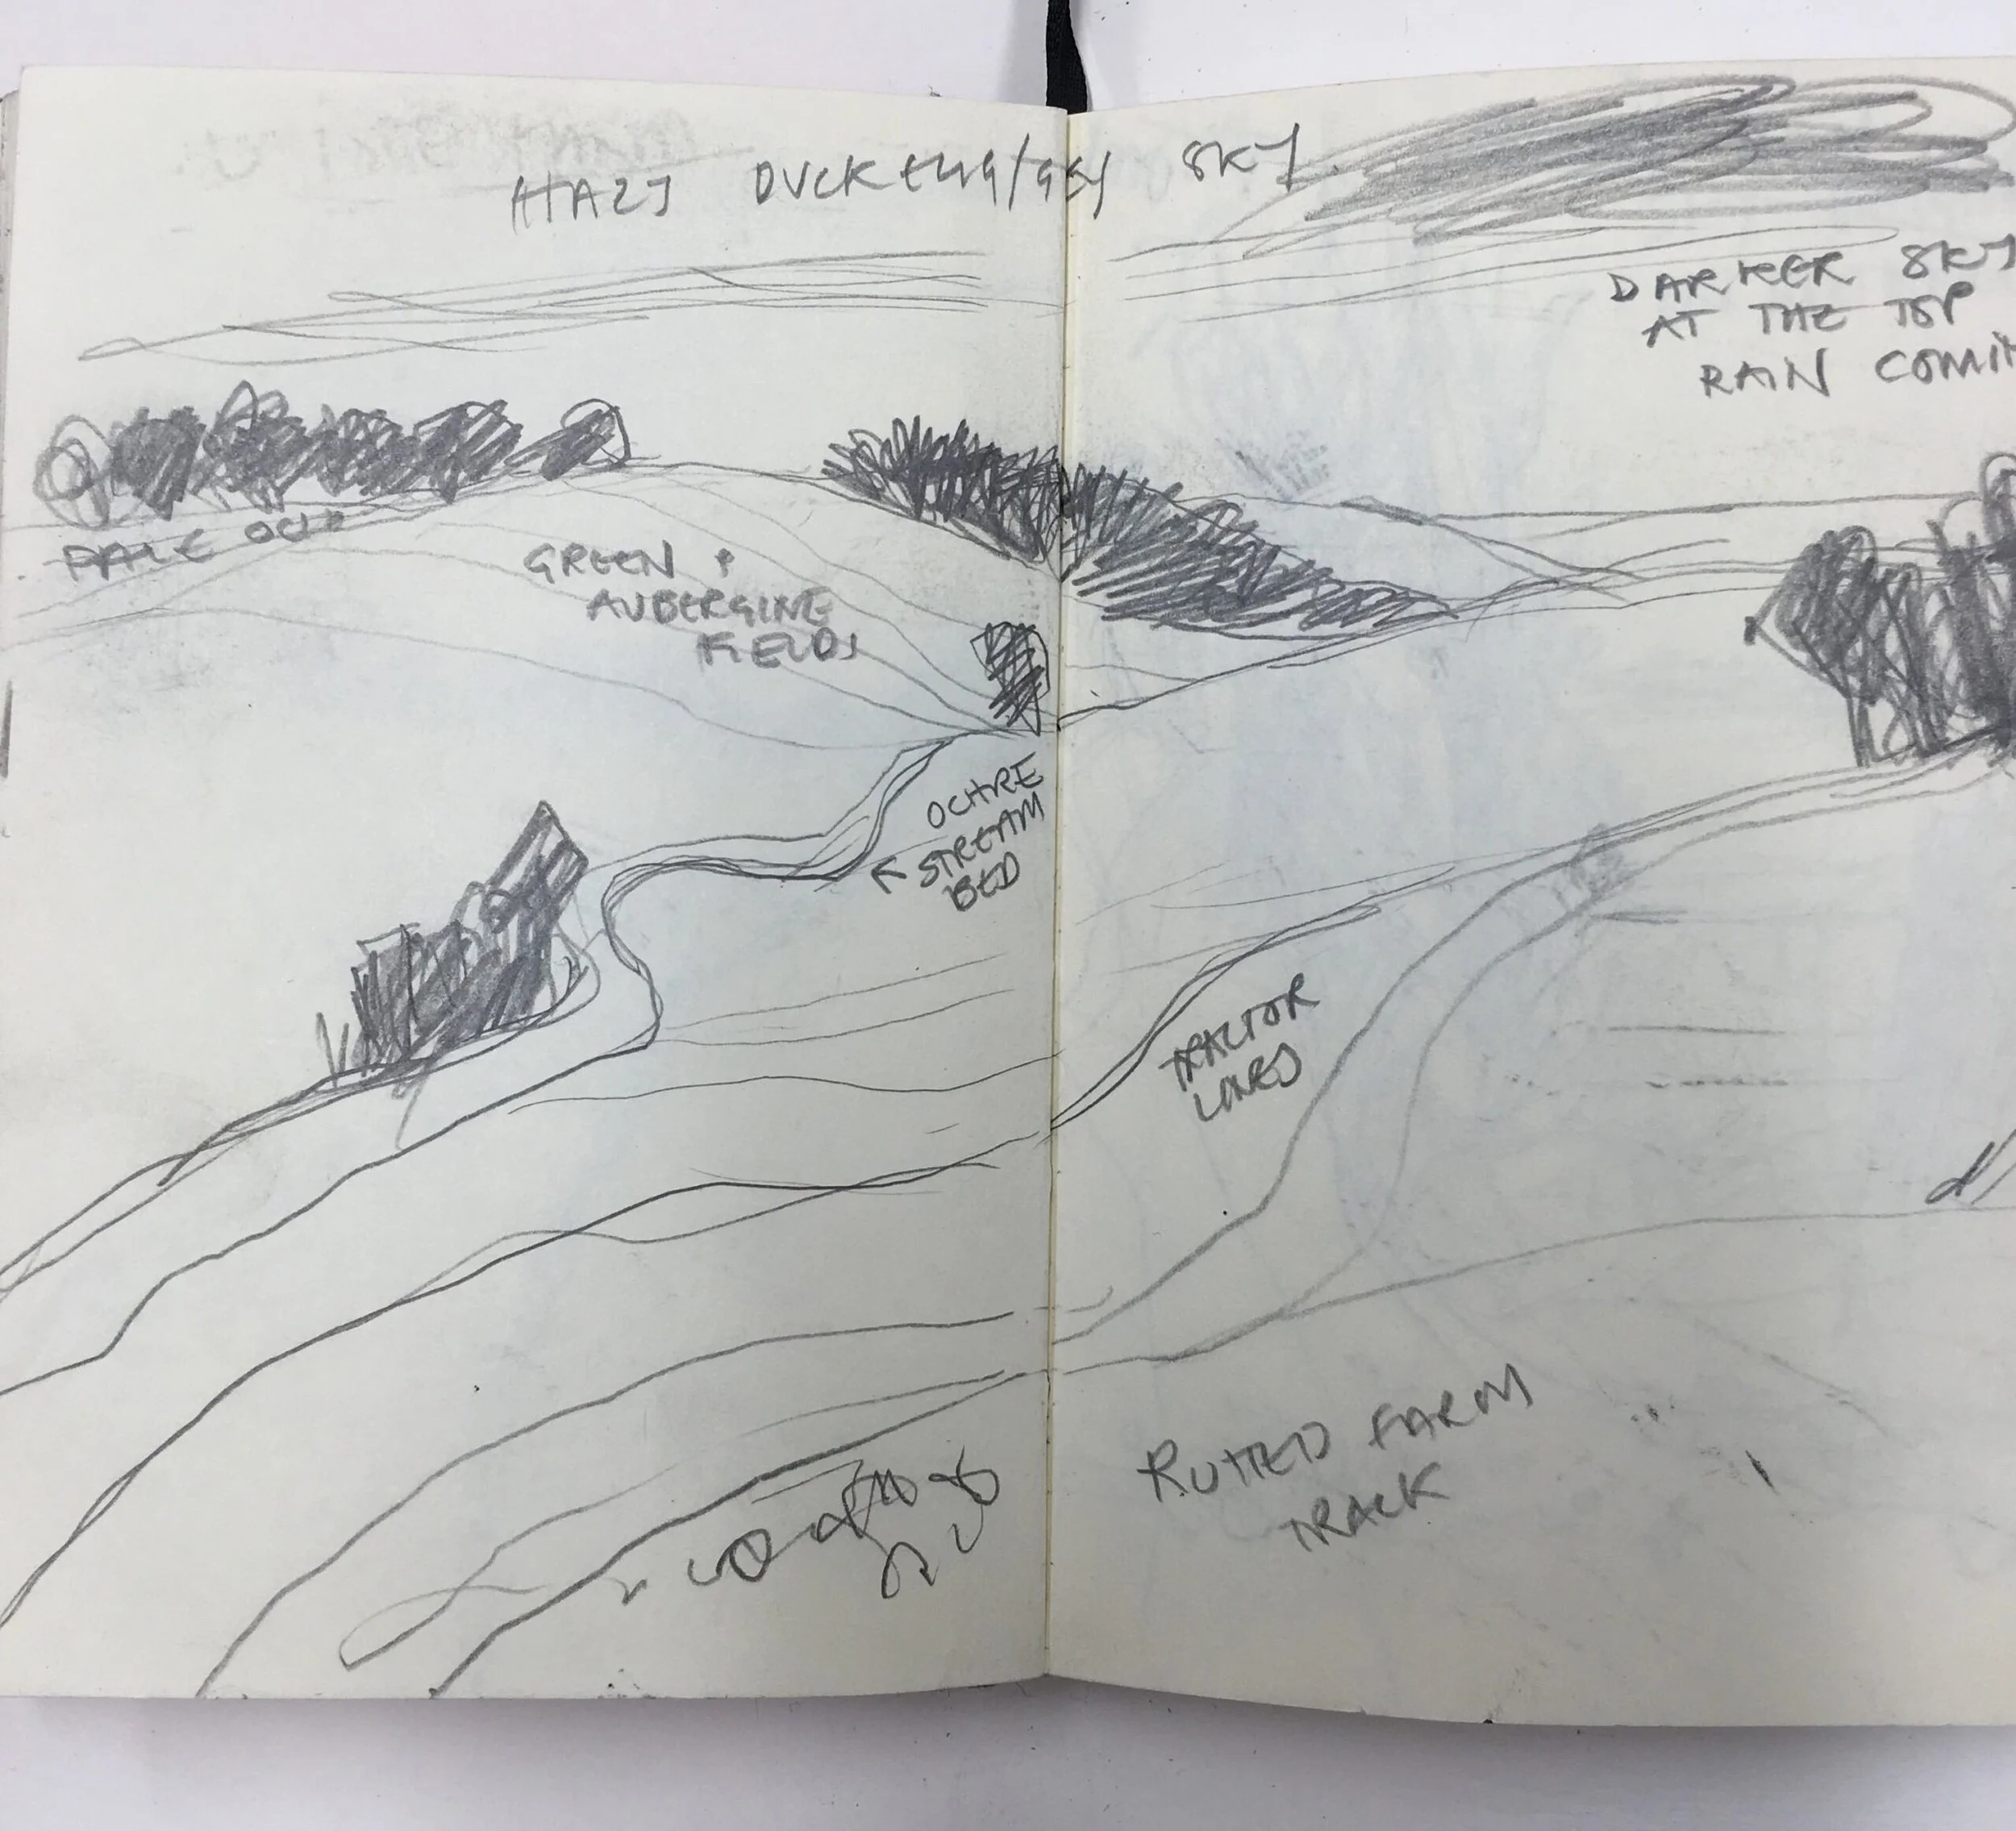 HAZY DUCK EGG/GREY SKY.
DARKER SKY
AT THE TOP
RAIN COMIN
PALE
GREEN +
AUBERGINE
FIELDS
OCHRE
STREAM
BED
TRACTOR
LINES
RUTTED FARM
TRACK